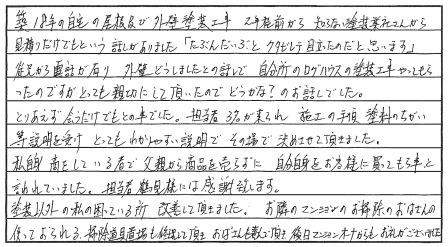 築18年の自宅の屋根及び外壁塗装工事 2年程前から知らない塗装業社さんから
見積りだけでもという話しがありました「たぶんだいぶとクタビレテ目立たのだと思います」
従兄から電話が有り 外壁どうしましたとの話しで 自分所のログハウスの塗装工事やってもら
ったのですがとっても親切にして頂いたのでどうかな?のお話でした。
とりあえず会うだけでもとの事でした。担当者3名が来られ 施工の手順 塗料のちがい
等説明を受け とってもわかりやすい説明で その場で決めさせて頂きました。
私自身 商をしている者で父親から商品を売らずに 自分自身をお客様に買てもらう事と
言われていました。担当者 鶴見様には感謝致します。
塗装以外の私の困っている所 改善して頂きました。お隣のマンションのお掃除のおばさんの
使っておられる、掃除道具置場も修理して頂き おばさんも歓んで頂き 後日マンションオーナからもお礼がございました